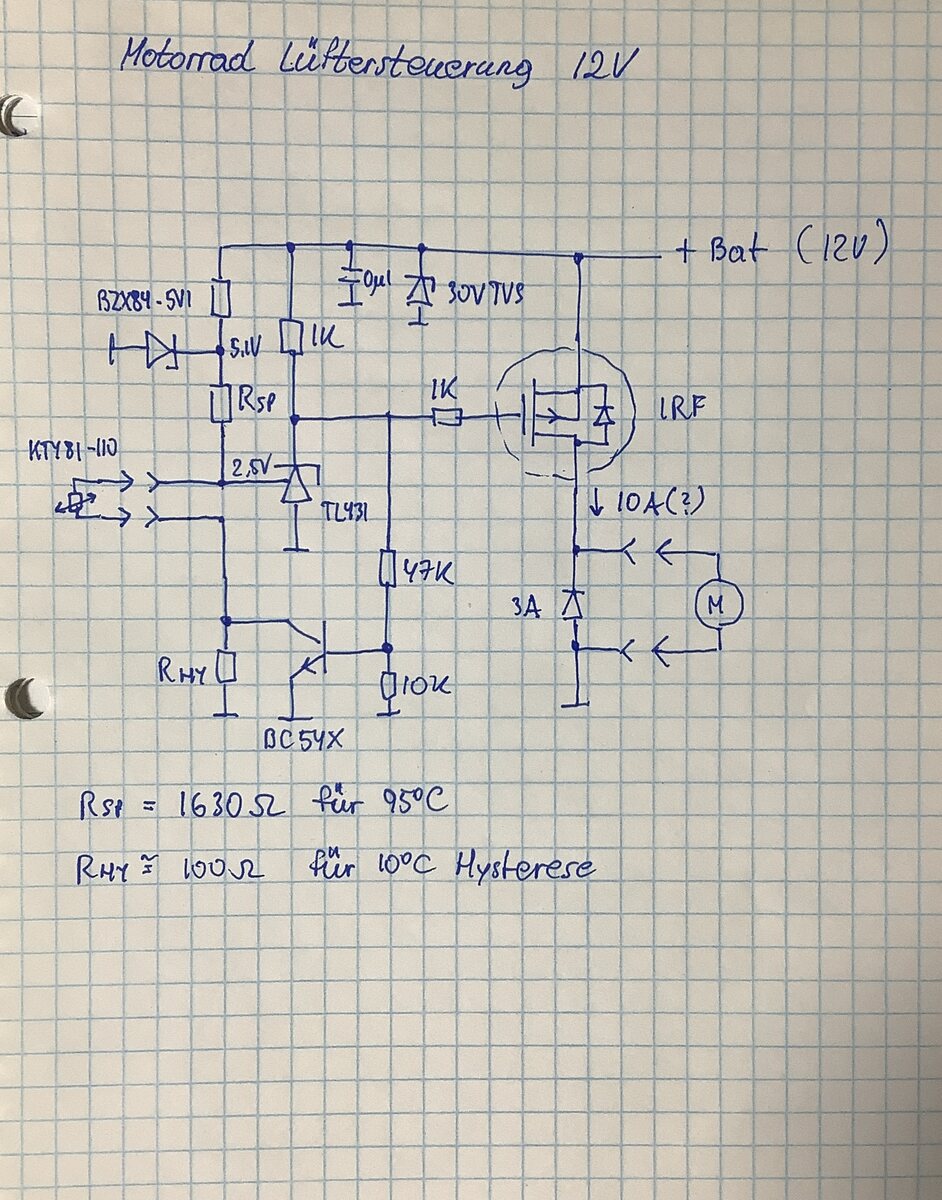 Motorrad Lüftersteuerung 12V
+ Bat (12V)
BZX84-5V1
0µ1
30V TVS
5.1V
1K
RSP
1K
1RF
KTY81-110
2,5V
TL431
↓ 10A(?)
47K
3A
M
RHY
10K
BC54X
RSP = 1630Ω für 95°C
RHY ≅ 100Ω für 10°C Hysterese